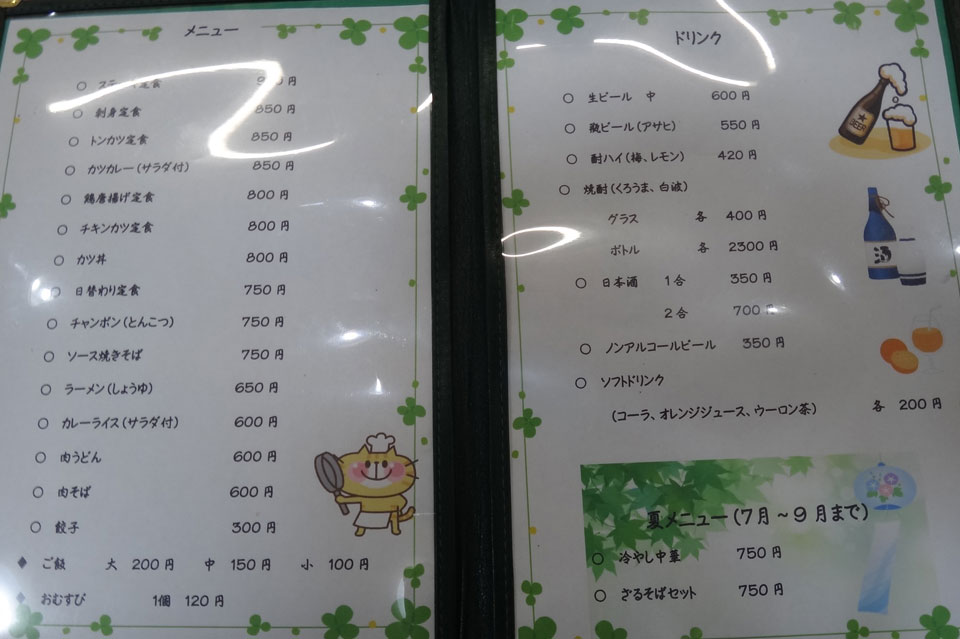 メニュー
○ ステーキ定食 円
○ 刺身定食 850 円
○ トンカツ定食 850 円
○ カツカレー(サラダ付) 850 円
○ 鶏唐揚げ定食 800 円
○ チキンカツ定食 800 円
○ カツ丼 800 円
○ 日替わり定食 750 円
○ チャンポン(とんこつ) 750 円
○ ソース焼きそば 750 円
○ ラーメン(しょうゆ) 650 円
○ カレーライス(サラダ付) 600 円
○ 肉うどん 600 円
○ 肉そば 600 円
○ 餃子 300 円
◆ ご飯 大 200 円 中 150 円 小 100 円
◆ おむすび 1個 120 円
ドリンク
○ 生ビール 中 600 円
○ 瓶ビール(アサヒ) 550 円
○ 酎ハイ(梅、レモン) 420 円
○ 焼酎(くろうま、白波)
グラス 各 400 円
ボトル 各 2300 円
○ 日本酒 1合 350 円
2合 700 円
○ ノンアルコールビール 350 円
○ ソフトドリンク
(コーラ、オレンジジュース、ウーロン茶) 各 200 円
BEER
酒
夏メニュー(7月～9月まで)
○ 冷やし中華 750 円
○ ざるそばセット 750 円